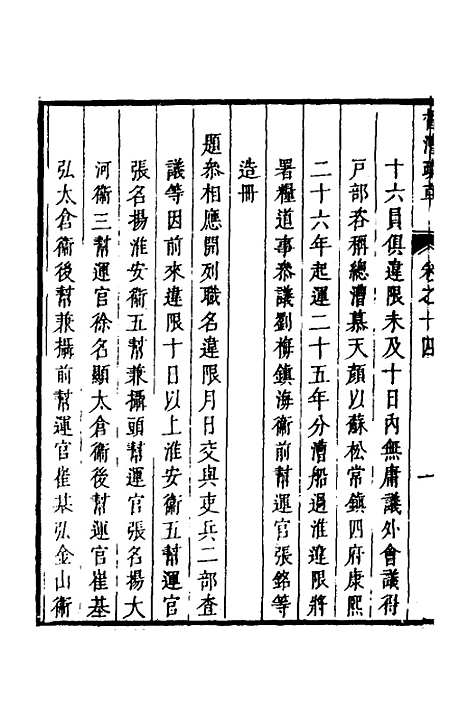 督漕疏草
卷之十四
一
十六員俱違限未及十日內無庸議外會議得
戶部咨稱總漕慕天顏以蘇松常鎮四府康熙
二十六年起運二十五年分漕船過淮違限將
署糧道事叅議劉梅鎮海衛前幫運官張銘等
造冊
題叅相應開列職名違限月日交與吏兵二部查
議等因前來違限十日以上淮安衛五幫運官
張名揚淮安衛五幫兼攝頭幫運官張名揚大
河衛三幫運官徐名顯太倉衛後幫運官崔基
弘太倉衛後幫兼攝前幫運官崔基弘金山衛